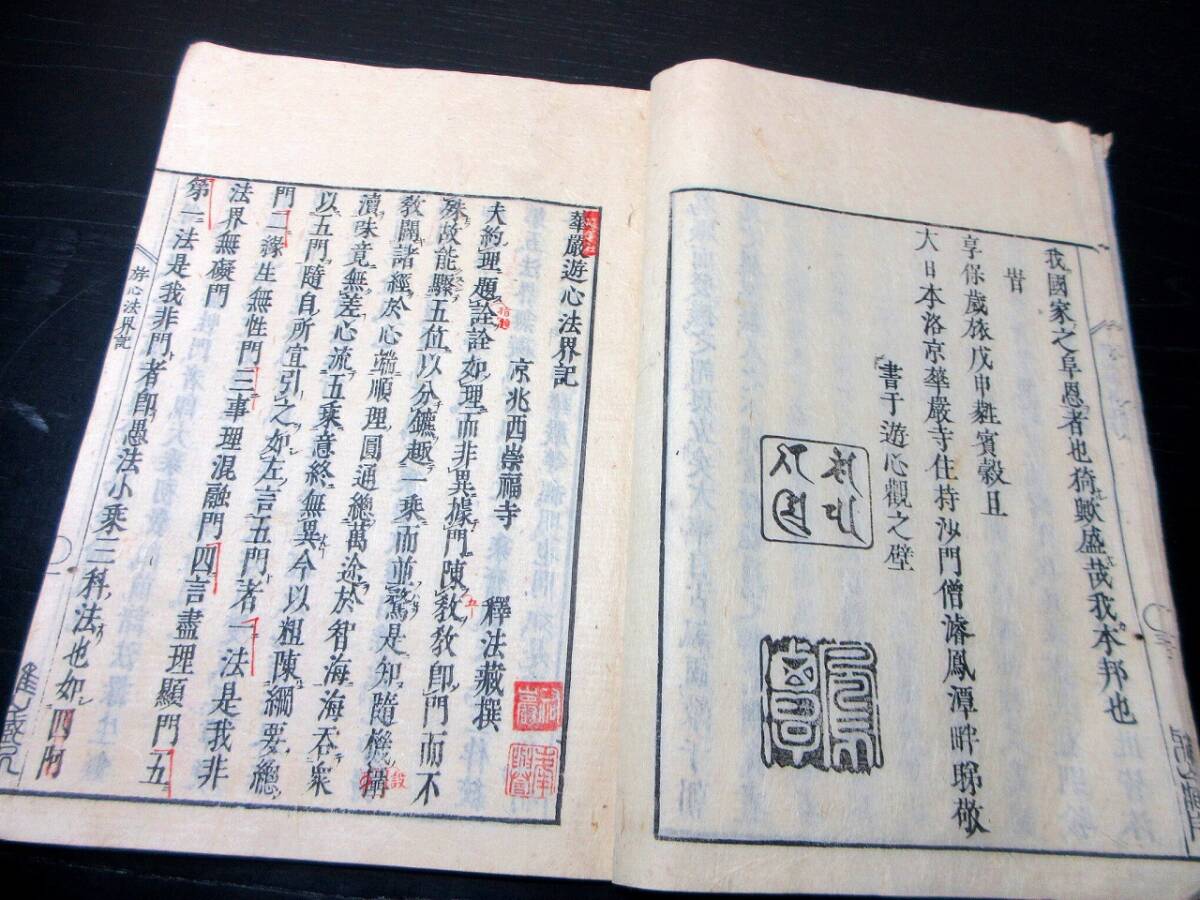 我國家之阜恩者也猗歟盛哉我本邦也
旹
享保歲旅戊申蕤賓穀旦
大日本洛京華嚴寺住持沙門僧濬鳳潭畔睇敬
書于遊心觀之壁
華嚴遊心法界記
京兆西崇福寺 釋法藏撰
夫約理題詮詮如理而非異據門陳敎敎卽門而不
殊故能驟五位以分鑣趣一乘而並騖是知隨機
敎闢諸經於心端順理圓通總萬途於智海海吞衆
瀆味竟無差心流五乘意終無異今以粗陳綱要總
以五門隨自所宜引之如左言五門者一法是我非
門二緣生無性門三事理混融門四言盡理顯門五
法界無礙門
第一法是我非門者卽愚法小乘三科法也如四阿
遊心法界記